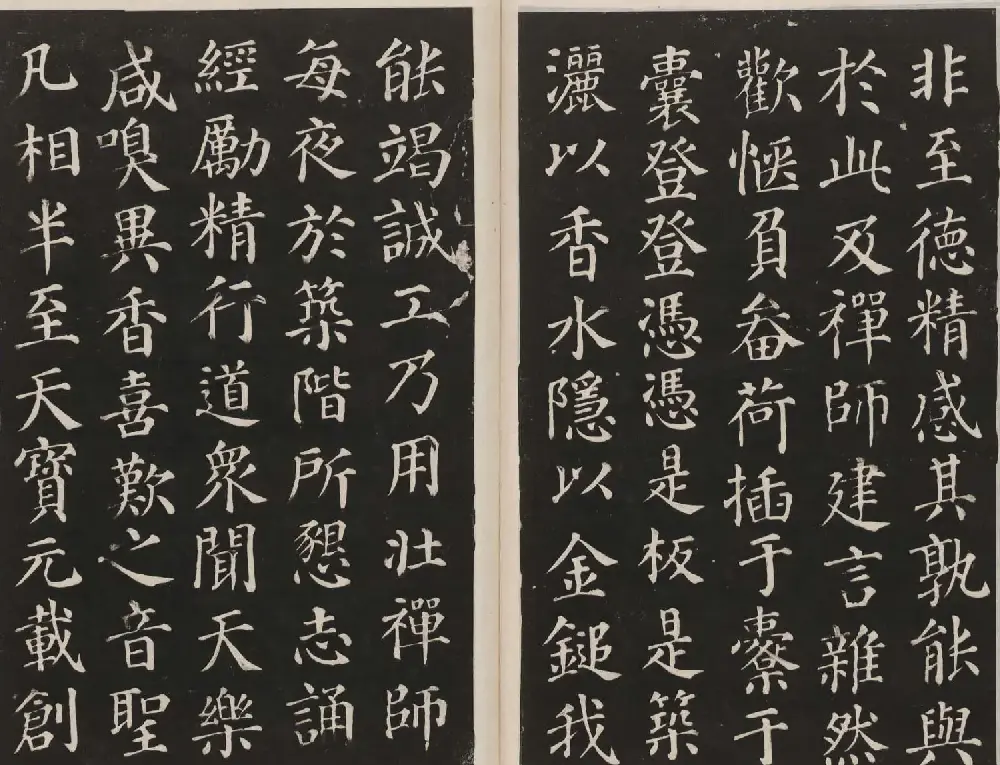 非至德精感其孰能與
於此及禪師建言雜然
歡愜負畚荷插于橐于
囊登登憑憑是板是築
灑以香水隱以金鎚我
能竭誠工乃用壯禪師
每夜於築階所懇志誦
經勵精行道眾聞天樂
咸嗅異香喜歎之音聖
凡相半至天寶元載創